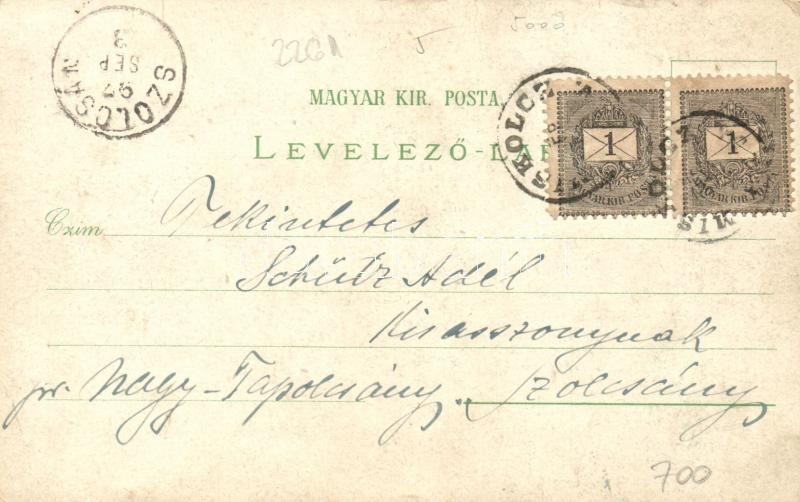 2261
5
5000
SZOLCSÁN
97
SEP
3
MAGYAR KIR. POSTA.
LEVELEZŐ-LAP
MISKOLCZ
1
MAGYAR KIR. POSTA
MISKOLCZ
1
MAGYAR KIR. POSTA
Czim
Tekintetes
Schütz Adél
Kisasszonynak
pr. Nagy-Tapolcsány „ Szolcsány
700